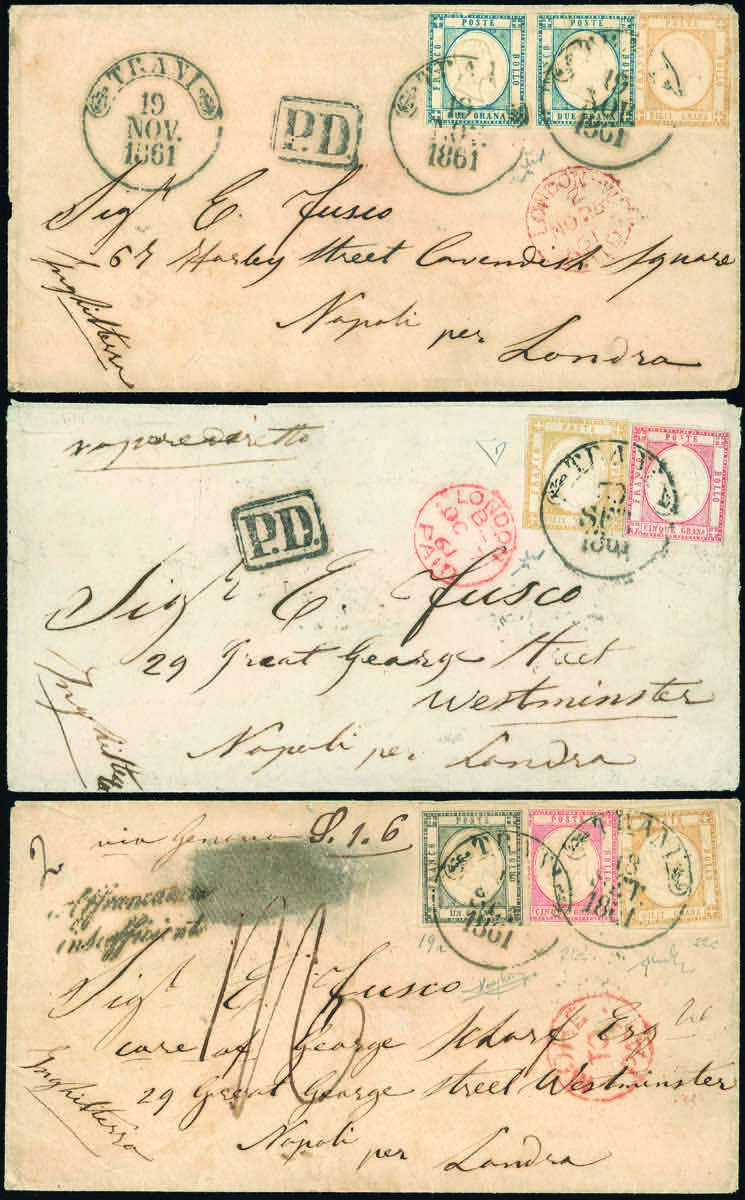 POSTE
FRANCO
BOLLO
DUE GRANA
POSTE
FRANCO
BOLLO
DUE GRANA
POSTE
FRANCO
BOLLO
DIECI GRANA
TRANI
19
NOV.
1861
P.D.
TRANI
19
NOV.
1861
19
NOV.
1861
LONDON
Sigr E. Fusco
67 Harley Street Cavendish Square
Inghilterra
Napoli per Londra
vapore diretto
POSTE
FRANCO
BOLLO
DIECI GRANA
POSTE
FRANCO
BOLLO
CINQUE GRANA
TRANI
SET
1861
P.D.
LONDON
OC
61
PAID
Sigr E. Fusco
29 Great George Street
Westminster
Inghilterra
Napoli per Londra
2
via Genova S.1.6
POSTE
FRANCO
BOLLO
POSTE
FRANCO
CINQUE GRANA
POSTE
BOLLO
DIECI GRANA
TRANI
1861
TRANI
18
SET.
1861
Affrancatura
insufficiente
1/6
Sigr E. Fusco
care of George Scharf Esq
29 Great George Street Westminster
Inghilterra
Napoli per Londra